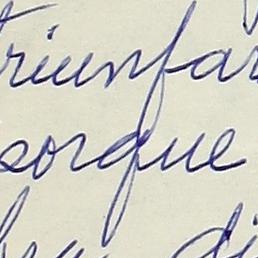 triunfar
porque
di